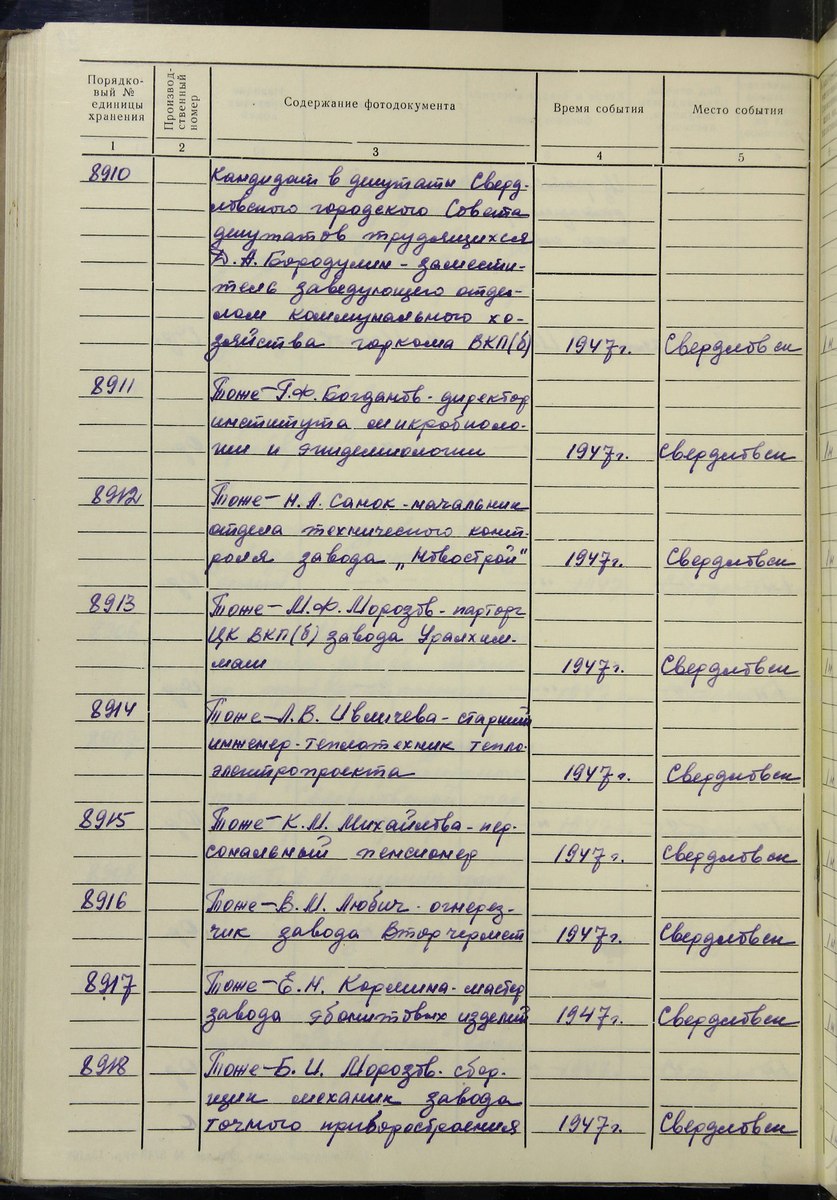 Порядко-
вый №
единицы
хранения
Производ-
ственный
номер
Содержание фотодокумента
Время события
Место события
1 2 3 4 5
8910 Кандидат в депутаты Сверд-
ловского городского Совета
депутатов трудящихся
Д.А. Бородулин - замести-
тель заведующего отде-
лом коммунального хо-
зяйства горкома ВКП(б) 1947г. Свердловск
8911 Тоже - Г.Ф. Богданов - директор
института микробиоло-
гии и эпидемиологии 1947г. Свердловск
8912 Тоже - Н.А. Санок - начальник
отдела технического конт-
роля завода „Новострой" 1947г. Свердловск
8913 Тоже - М.Ф. Морозов - парторг
ЦК ВКП(б) завода Уралхим-
маш 1947г. Свердловск
8914 Тоже - Л.В. Ивличева - старший
инженер - теплотехник тепло-
электропроекта 1947г. Свердловск
8915 Тоже - К.М. Михайлова - пер-
сональный пенсионер 1947г. Свердловск
8916 Тоже - В.М. Любич - огнерез-
чик завода Вторчермет 1947г. Свердловск
8917 Тоже - Е.Н. Кормина - мастер
завода эбонитовых изделий 1947г. Свердловск
8918 Тоже - Б.И. Морозов - сбор-
щик механик завода
точного приборостроения 1947г. Свердловск